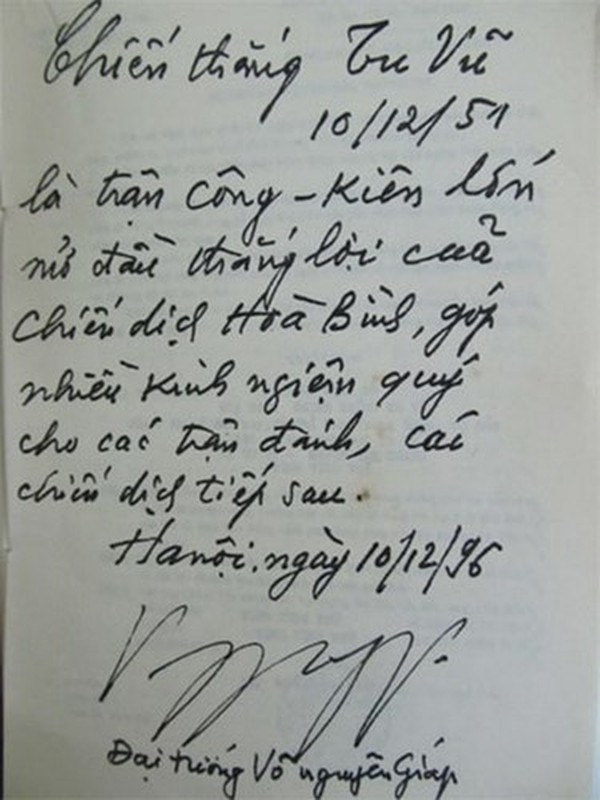 Chiến thắng Tu Vũ
10/12/51
là trận công-Kiên lớn
mở đầu thắng lợi của
chiến dịch Hoà Bình, góp
nhiều kinh ngiệm quý
cho các trận đánh, các
chiến dịch tiếp sau.
Hanội, ngày 10/12/96
Đại tướng Võ nguyên Giáp